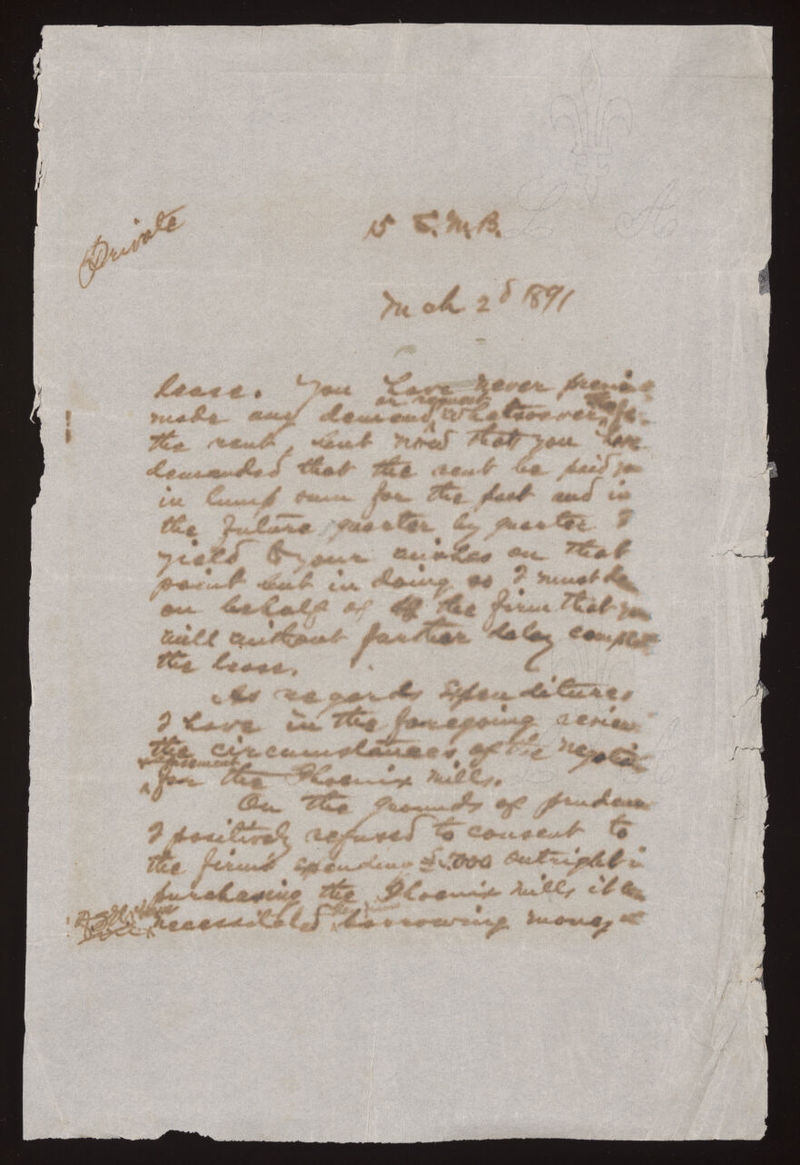 Private
15 C.M.B.
Mch 2d 1891
lease. You have never
or request
made any demand whatsoever for
the rent, but now that you have
demanded that the rent be paid you
in lump sum for the past and in
the future quarter by quarter I
yield to your wishes on that
point but in doing so I must
on behalf of the firm that you
will without further delay complete
the lease.
As regards Expenditures
I have in the foregoing
the circumstances of the
agreement
for the Phoenix Mills.
On the grounds of prudence
I positively refused to consent to
the firm's spending outright in
purchasing the Phoenix Mills
necessitated borrowing money